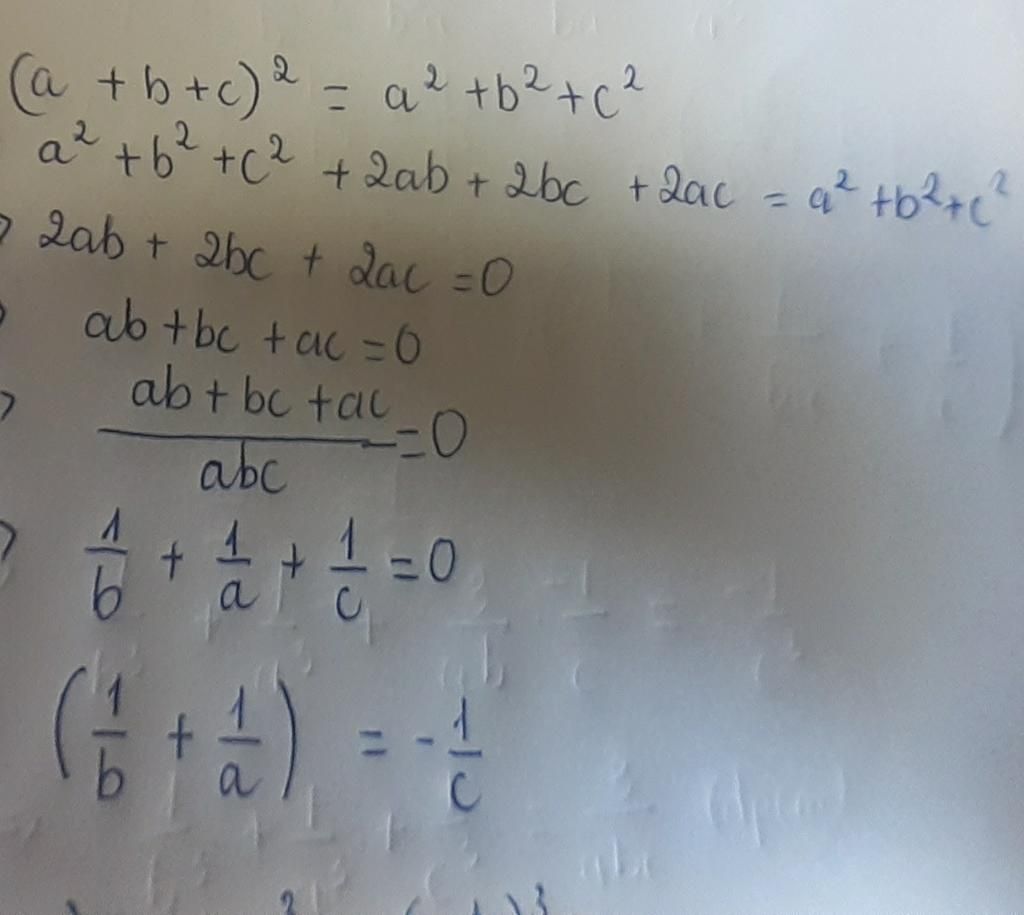 (a + b + c)² = a² + b² + c²
a² + b² + c² + 2ab + 2bc + 2ac = a² + b² + c²
2ab + 2bc + 2ac = 0
ab + bc + ac = 0
(ab + bc + ac)/abc = 0
1/b + 1/a + 1/c = 0
(1/b + 1/a) = -1/c